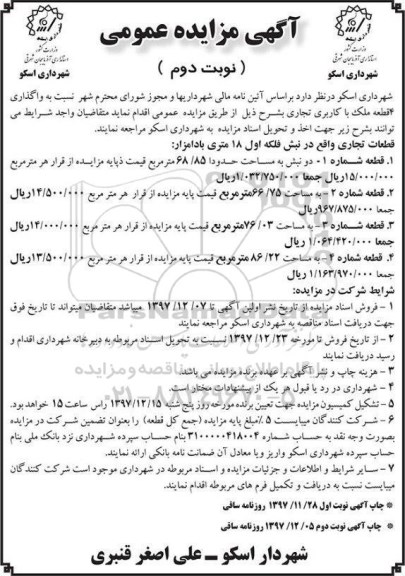 آگهی مزایده عمومی
( نوبت دوم )
وزارت کشور
استانداری آذربایجان شرقی
شهرداری اسکو
وزارت کشور
استانداری آذربایجان شرقی
شهرداری اسکو
شهرداری اسکو درنظر دارد براساس آئین نامه مالی شهرداریها و مجوز شورای محترم شهر نسبت به واگذاری
۴قطعه ملک با کاربری تجاری بشرح ذیل از طریق مزایده عمومی اقدام نماید متقاضیان واجد شرایط می
توانند بشرح زیر جهت اخذ و تحویل اسناد مزایده به شهرداری اسکو مراجعه نمایند.
قطعات تجاری واقع در نبش فلکه اول ۱۸ متری بادامزار:
۱. قطعه شماره ۰۱ دو نبش به مساحت حدودا ۶۸/۸۵ مترمربع قیمت پایه مزایده از قرار هر مترمربع
۱۵/۰۰۰/۰۰۰ریال جمعا ۱/۰۳۲/۷۵۰/۰۰۰ریال
۲. قطعه شماره ۲ - به مساحت ۶۶/۷۵مترمربع قیمت پایه مزایده از قرار هر متر مربع ۱۴/۵۰۰/۰۰۰ریال
جمعا ۹۶۷/۸۷۵/۰۰۰ریال
۳. قطعه شماره ۳ - به مساحت ۷۶/۰۳مترمربع قیمت پایه مزایده از قرار هر متر مربع ۱۴/۰۰۰/۰۰۰ریال
جمعا ۱/۰۶۴/۴۲۰/۰۰۰ ریال
۴. قطعه شماره ۴ - به مساحت ۸۶/۲۲ مترمربع قیمت پایه مزایده از قرار هر متر مربع ۱۳/۵۰۰/۰۰۰ریال
جمعا ۱/۱۶۳/۹۷۰/۰۰۰ ریال
شرایط شرکت در مزایده:
۱ - فروش اسناد مزایده از تاریخ نشر اولین آگهی تا ۱۳۹۷/۱۲/۰۷ میباشد متقاضیان میتواند تا تاریخ فوق
جهت دریافت اسناد مناقصه به شهرداری اسکو مراجعه نمایند
۲ - از تاریخ فروش تا مورخه ۱۳۹۷/۱۲/۲۳ نسبت به تحویل اسناد مربوطه به دبیرخانه شهرداری اقدام و
رسید دریافت نمایند
۳ - هزینه چاپ و نشر آگهی بر عهده برنده مزایده می باشد.
۴ - شهرداری در رد یا قبول هر یک از پیشنهادات مختار است.
۵ - تشکیل کمیسیون مزایده جهت تعیین برنده مورخه روز پنج شنبه ۱۳۹۷/۱۲/۱۵ راس ساعت ۱۵ خواهد بود.
۶ - شرکت کنندگان میبایست ۵٪مبلغ پایه مزایده (جمع کل قطعه) را بعنوان تضمین شرکت در مزایده
بصورت وجه نقد به حساب شماره ۳۱۰۰۰۰۰۴۱۸۰۰۴ بنام حساب سپرده شهرداری نزد بانک ملی بنام
حساب سپرده شهرداری اسکو واریز ویا معادل آن ضمانت نامه بانکی ارائه نمایند.
۷ - سایر شرایط و اطلاعات و جزئیات مزایده و اسناد مربوطه در شهرداری موجود است شرکت کنندگان
میبایست نسبت به دریافت و تکمیل فرم های مربوطه اقدام نمایند.
* چاپ آگهی نوبت اول ۱۳۹۷/۱۱/۲۸ روزنامه ساقی
* چاپ آگهی نوبت دوم ۱۳۹۷/۱۲/۰۵ روزنامه ساقی
شهردار اسکو – علی اصغر قنبری